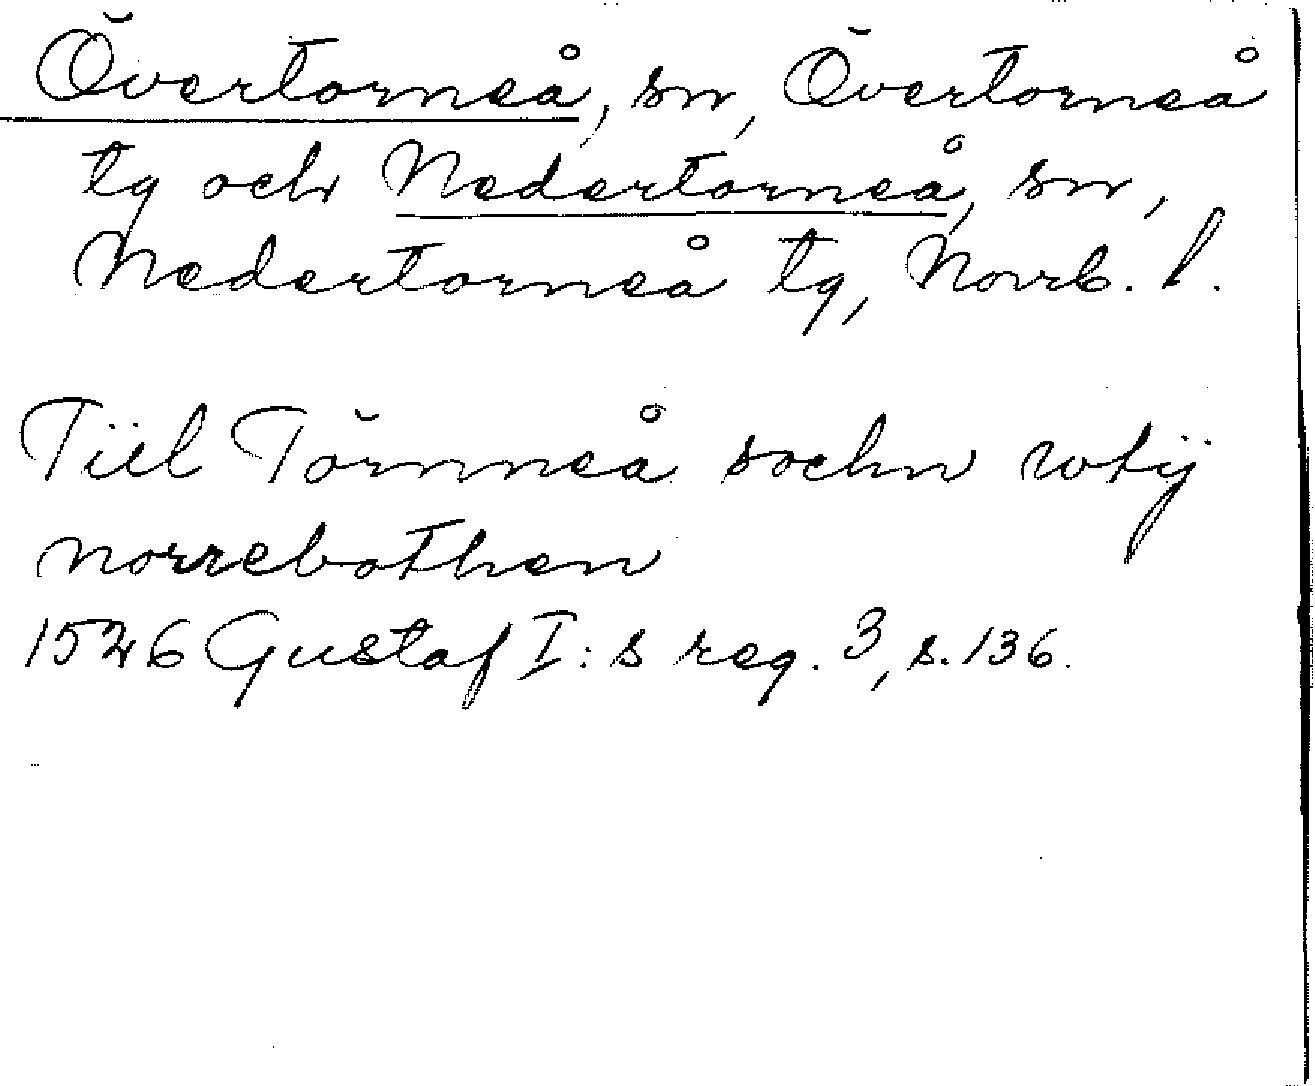 Övertorneå, sn, Övertorneå
tg och Nedertorneå, sn,
Nedertorneå tg, Norrb. l.
Tiil Törnneå sochn wtij
norrebothen
1526 Gustaf I:s reg. 3, s. 136.